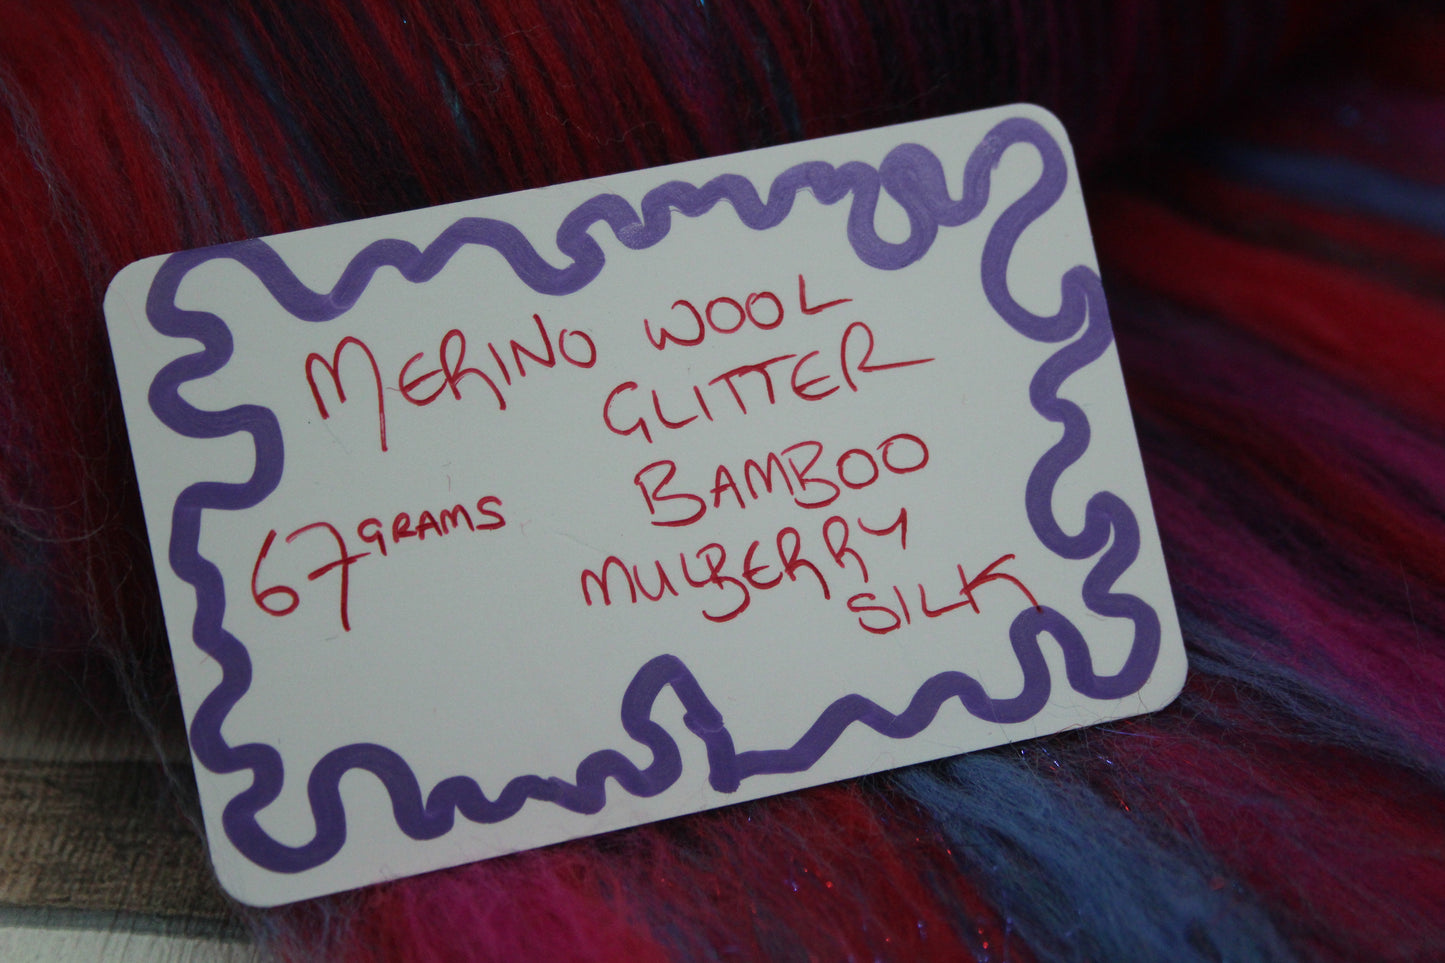 MERINO WOOL
GLITTER
BAMBOO
67 GRAMS
MULBERRY
SILK